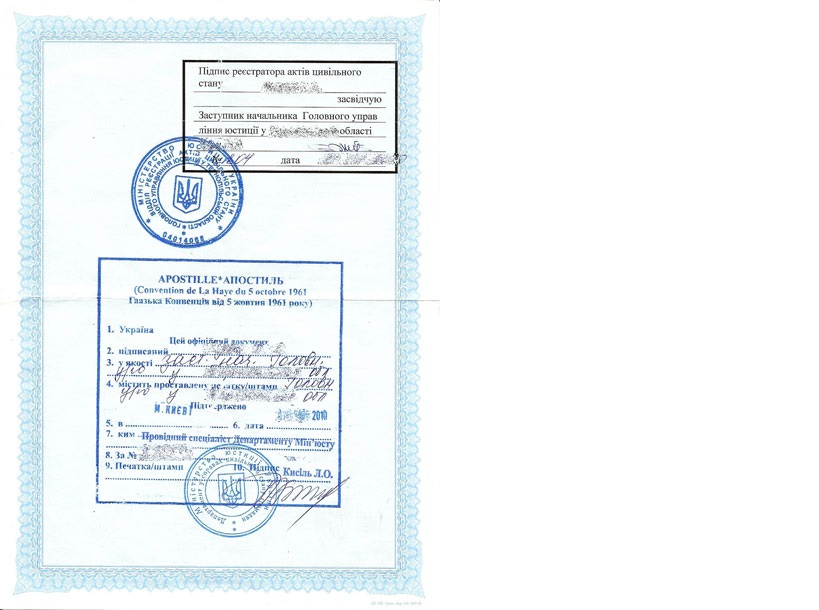 Підпис реєстратора актів цивільного
стану
засвідчую
Заступник начальника Головного управ
ління юстиції у області
дата
МІНІСТЕРСТВО ЮСТИЦІЇ УКРАЇНИ
ВІДДІЛ РЕЄСТРАЦІЇ АКТІВ ЦИВІЛЬНОГО СТАНУ
ГОЛОВНОГО УПРАВЛІННЯ ЮСТИЦІЇ У ТЕРНОПІЛЬСЬКІЙ ОБЛАСТІ
04014068
APOSTILLE*АПОСТИЛЬ
(Convention de La Haye du 5 octobre 1961
Гаазька Конвенція від 5 жовтня 1961 року)
1. Україна
Цей офіційний документ
2. підписаний
3. у якості заст. нач. Головн.
упр у обл
4. містить проставлену печатку/штамп Головн
упр у обл
Підтверджено
М. КИЄВІ 2010
5. в 6. дата
7. ким Провідний спеціаліст Департаменту Мін'юсту
8. За №
9. Печатка/штамп 10. Підпис Кисіль Л.О.
Міністерство юстиції України